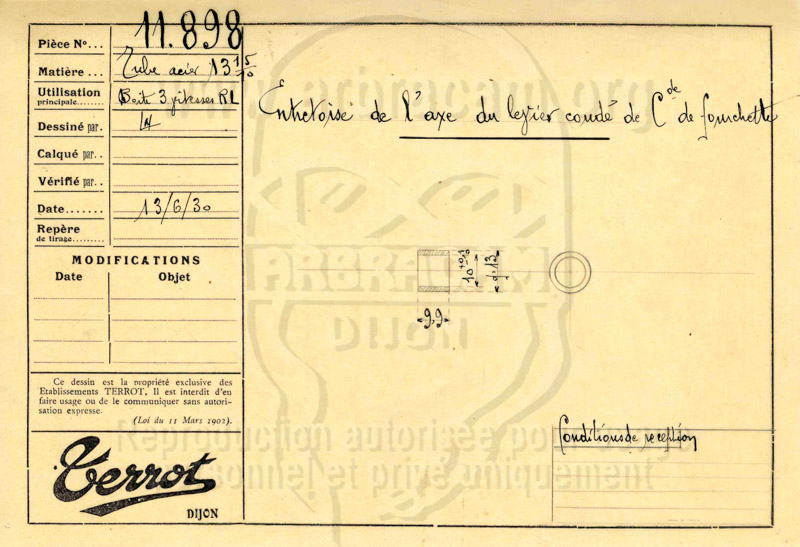 Pièce N°... 11.898
Matière... Tube acier 13 15/10
Utilisation principale... Boîte 3 vitesses RL
Dessiné par.
Calqué par..
Vérifié par..
Date....... 13/6/30
Repère de tirage.........
MODIFICATIONS
Date Objet
Ce dessin est la propriété exclusive des
Etablissements TERROT, Il est interdit d'en
faire usage ou de le communiquer sans autori-
sation expresse.
(Loi du 11 Mars 1902).
Terrot
DIJON
Entretoise de l'axe du levier coudé de Cde de fourchette
9,9
Conditions de reception
www.arbracam.org
ARBRACAM
DIJON
Reproduction autorisée pour usage
personnel et privé uniquement